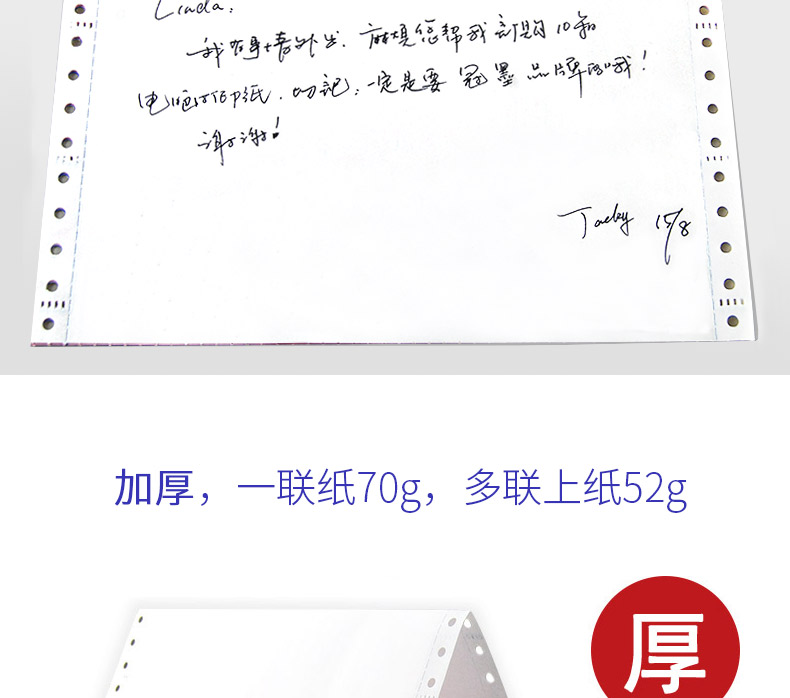 Linda:
我有事情外出，麻烦您帮我订购10箱
电脑打印纸，切记：一定是要冠墨品牌的哦！
谢谢！
Jacky 15/8
加厚，一联纸70g，多联上纸52g
厚